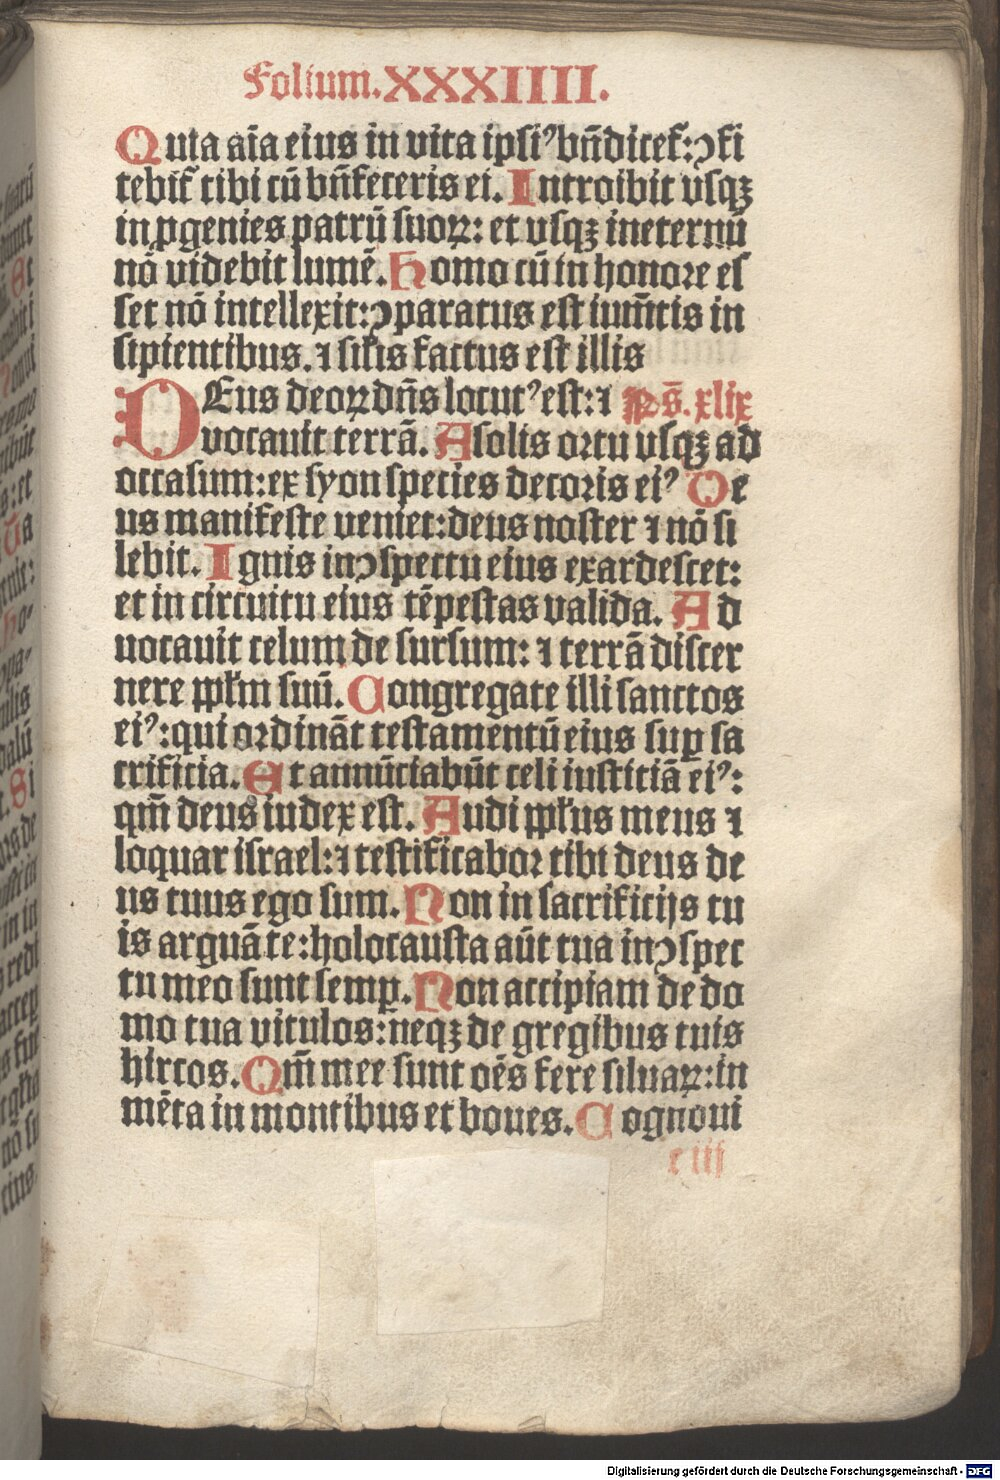 Folium.XXXIIII.
Quia aīa eius in vita ipsiꝰ bn̄dicet᷒: ↄfi
tebit᷒ tibi cū bn̄feceris ei. Introibit vsqꝫ
in ꝓgenies patrū suoꝝ: et vsqꝫ ineternū
nō videbit lumē. Homo cū in honore es
set nō intellexit: ↄparatus est ium̄tis in
sipientibus. ⁊ sil̄is factus est illis
DEus deoꝝ dn̄s locutꝰ est: ⁊ Ps̄. xlix
vocauit terrā. A solis ortu vsqꝫ ad
occasum: ex syon species decoris eiꝰ De
us manifeste veniet: deus noster ⁊ nō si
lebit. Ignis in ↄspectu eius exardescet:
et in circuitu eius tēpestas valida. Ad
uocauit celum de sursum: ⁊ terrā discer
nere ppl̄m suū. Congregate illi sanctos
eiꝰ: qui ordināt testamentū eius suꝑ sa
crificia. Et annūciabūt celi iusticiā eiꝰ:
qm̄ deus iudex est. Audi ppl̄us meus ⁊
loquar israel: ⁊ testificabor tibi deus de
us tuus ego sum. Non in sacrificijs tu
is arguā te: holocausta aūt tua in ↄspec
tu meo sunt semꝑ. Non accipiam de do
mo tua vitulos: neqꝫ de gregibus tuis
hircos. Qm̄ mee sunt oēs fere siluaꝝ: in
mēta in montibus et boues. Cognoui
e iij
Digitalisierung gefördert durch die Deutsche Forschungsgemeinschaft - DFG